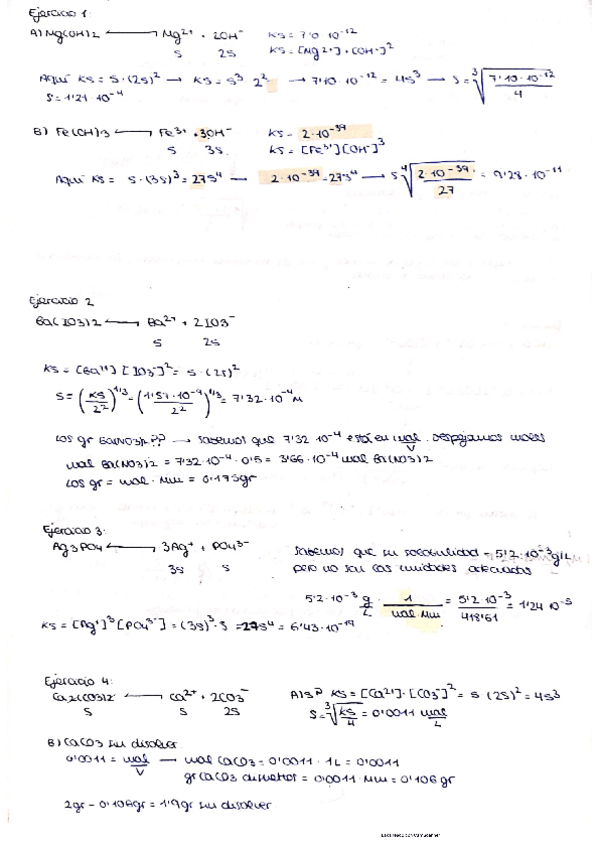 Ejercicio 1:
A) Mg(OH)2 ⟷ Mg²⁺ + 2OH⁻ KS = 7'0 · 10⁻¹²
S 2S KS = [Mg²⁺] · [OH⁻]²
Aquí KS = S · (2S)² → KS = S³ 2² → 7'10 · 10⁻¹² = 4S³ → S = ³√(7'10 · 10⁻¹² / 4)
S = 1'21 · 10⁻⁴
B) Fe(OH)3 ⟷ Fe³⁺ + 3OH⁻ KS = 2 · 10⁻³⁹
S 3S. KS = [Fe³⁺][OH⁻]³
Aquí KS = S · (3S)³ = 27S⁴ — 2 · 10⁻³⁹ = 27S⁴ → S ⁴√(2 · 10⁻³⁹ / 27) = 9'28 · 10⁻¹¹
Ejercicio 2
Ba(IO3)2 ⟷ Ba²⁺ + 2IO3⁻
S 2S
KS = [Ba²⁺] [IO3⁻]² = S · (2S)²
S = (KS / 2²)^1/3 = (1'57 · 10⁻⁹ / 2²)^1/3 = 7'32 · 10⁻⁴ M
Los gr Ba(NO3)2?? → sabemos que 7'32 · 10⁻⁴ está en mol/V. Despejamos moles
mol Ba(NO3)2 = 7'32 · 10⁻⁴ · 0'5 = 3'66 · 10⁻⁴ mol Ba(NO3)2
Los gr = mol · Mm = 0'193gr
Ejercicio 3:
Ag3PO4 ⟷ 3Ag⁺ + PO4³⁻ Sabemos que su solubilidad = 5'2 · 10⁻³ g/L
3S S pero no son las unidades adecuadas
5'2 · 10⁻³ g/L · 1 / mol · Mm = 5'2 · 10⁻³ / 418'61 = 1'24 · 10⁻⁵
KS = [Ag⁺]³ [PO4³⁻] = (3S)³ · S = 27S⁴ = 6'43 · 10⁻¹⁹
Ejercicio 4:
Ca2(CO3)2 ⟷ Ca²⁺ + 2CO3⁻ A) S? KS = [Ca²⁺] · [CO3⁻]² = S (2S)² = 4S³
S S 2S S = ³√(KS / 4) = 0'0011 mol/L
B) CaCO3 sin disolver.
0'0011 = mol/V → mol CaCO3 = 0'0011 · 1L = 0'0011
gr CaCO3 disueltos = 0'0011 · Mm = 0'106 gr
2gr - 0'106gr = 1'9gr sin disolver